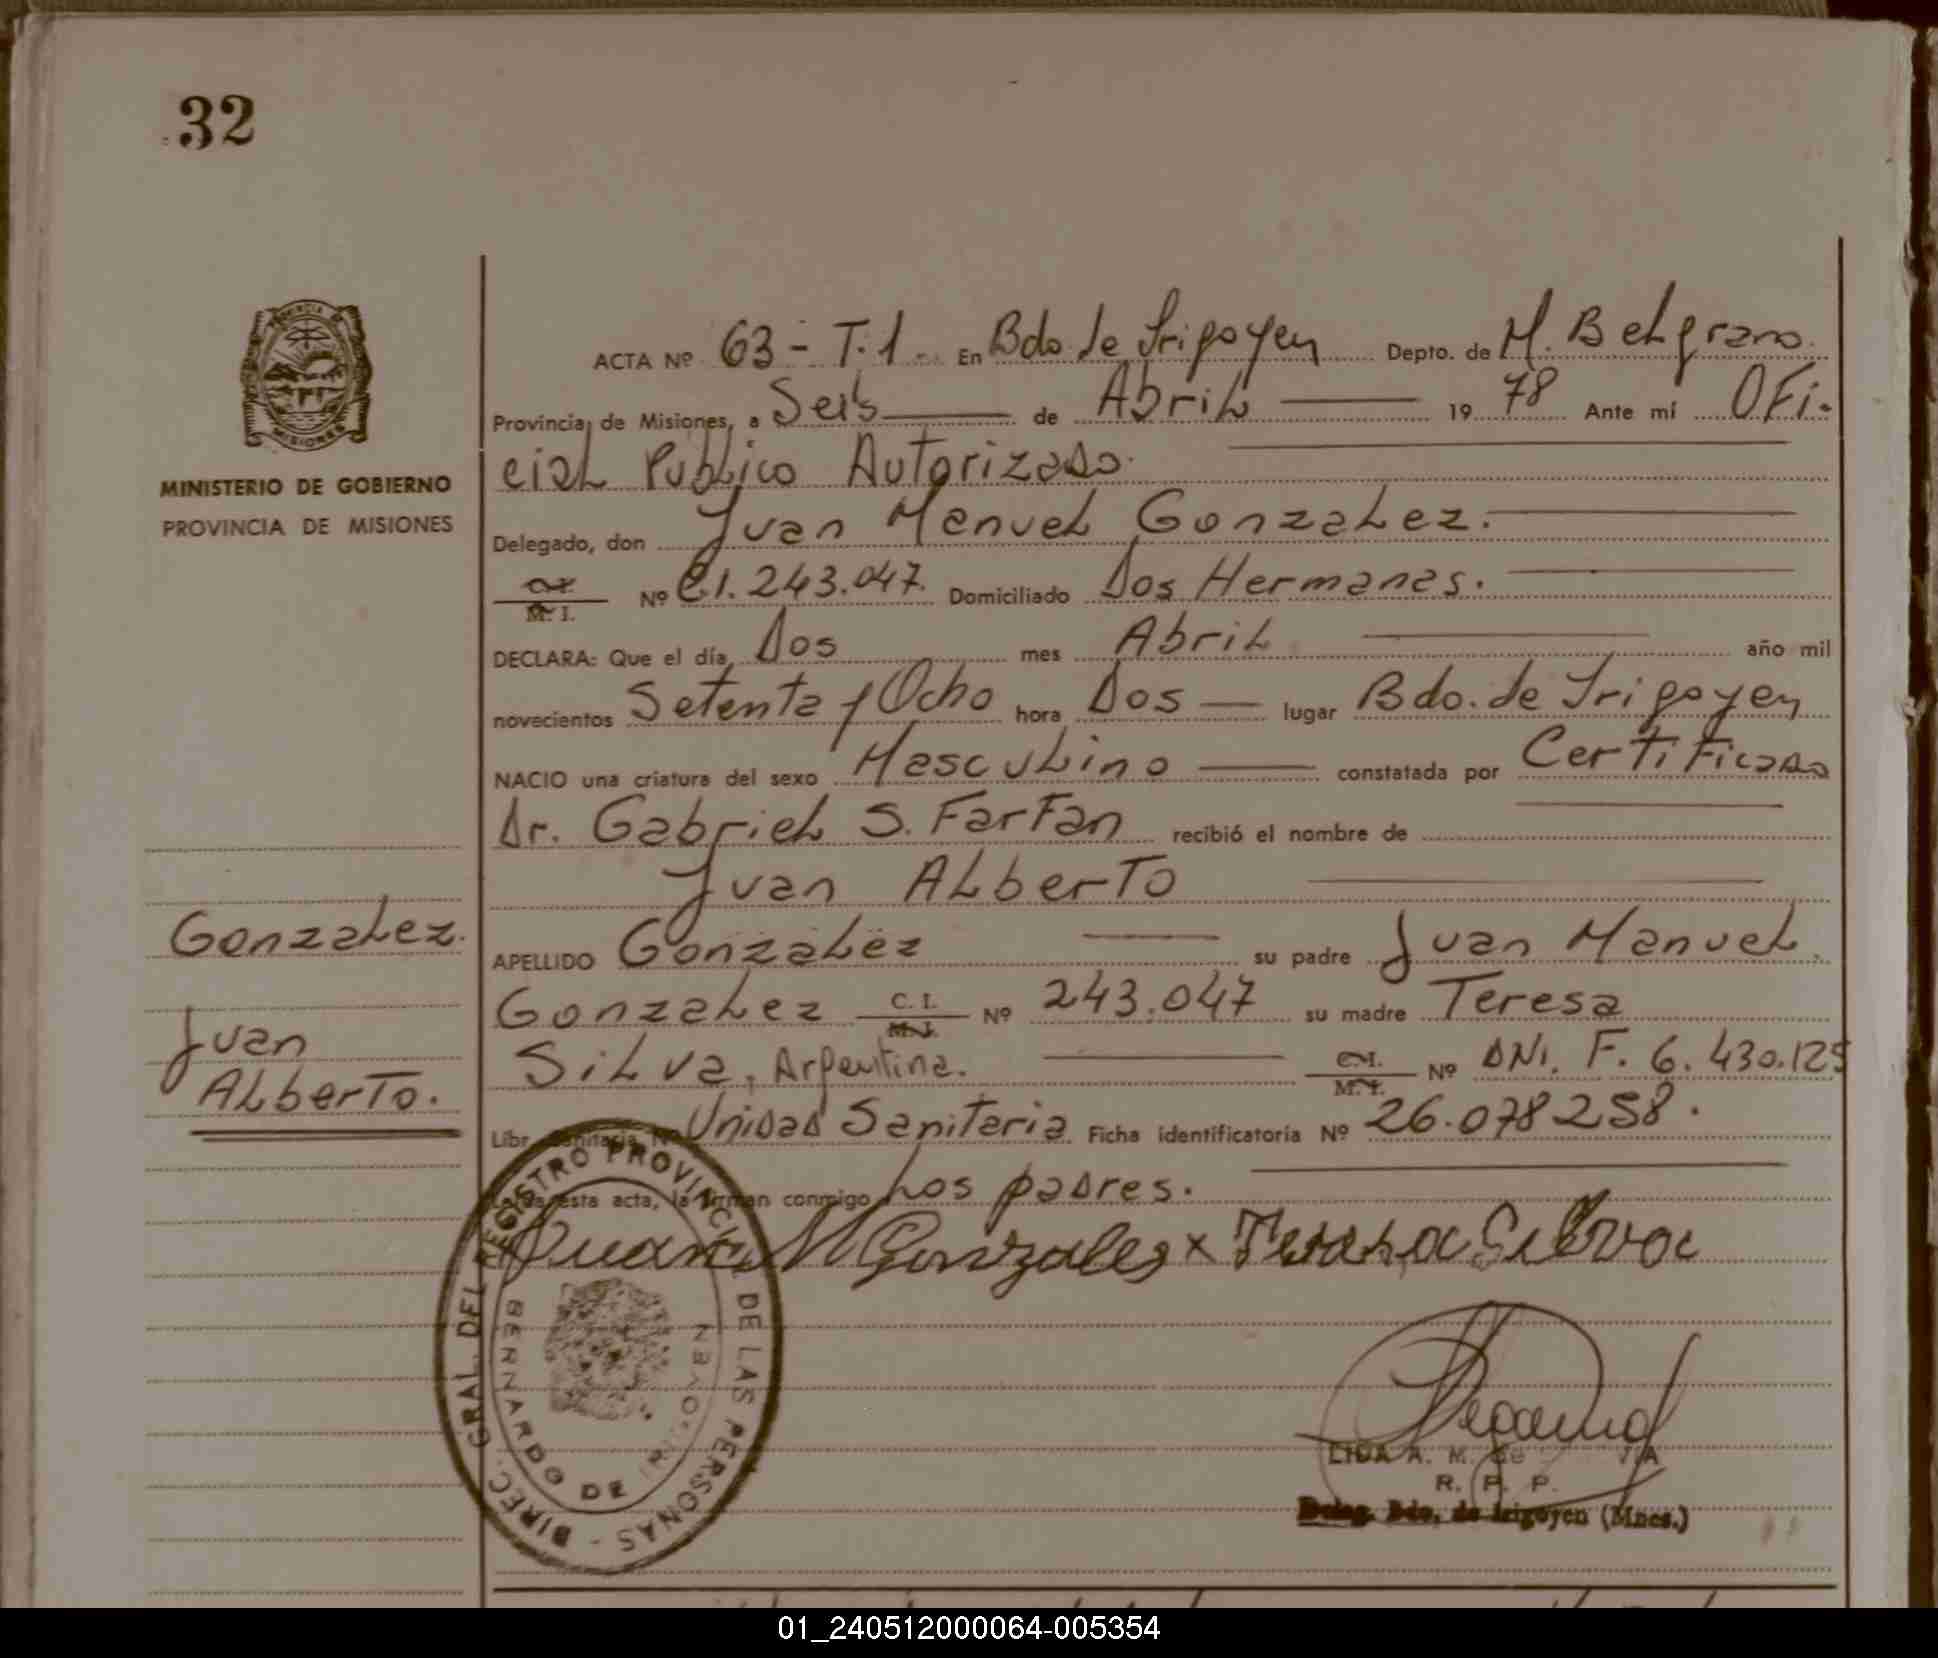 32
MINISTERIO DE GOBIERNO
PROVINCIA DE MISIONES
ACTA Nº 63 - T.1 En Bdo. de Irigoyen Depto. de M. Belgrano.
Provincia de Misiones, a Seis de Abril 19 78 Ante mí Ofi-
cial Publico Autorizado.
Delegado, don Juan Manuel Gonzalez.
C.I. M. I. Nº C.I. 243.047. Domiciliado Dos Hermanas.
DECLARA: Que el día Dos mes Abril año mil
novecientos Setenta y Ocho hora Dos lugar Bdo. de Irigoyen
NACIO una criatura del sexo Masculino constatada por Certificado
Dr. Gabriel S. Farfan recibió el nombre de
Juan Alberto
APELLIDO Gonzalez su padre Juan Manuel
Gonzalez C. I. M. I. Nº 243.047 su madre Teresa
Silva, Argentina. C.I. M.I. Nº DNI. F. 6.430.125
Libr. Sanitaria Nº Unidad Sanitaria Ficha identificatoria Nº 26.078258.
esta acta, la firman conmigo Los padres.
Juan M Gonzales x Teresa Silva
Gonzalez.
Juan
Alberto.
DIREC. GRAL. DEL REGISTRO PROVINCIAL DE LAS PERSONAS -
BERNARDO DE IRIGOYEN
LIDA A. M. de
R. P. P.
Deleg. Bdo. de Irigoyen (Mnes.)
01_240512000064-005354